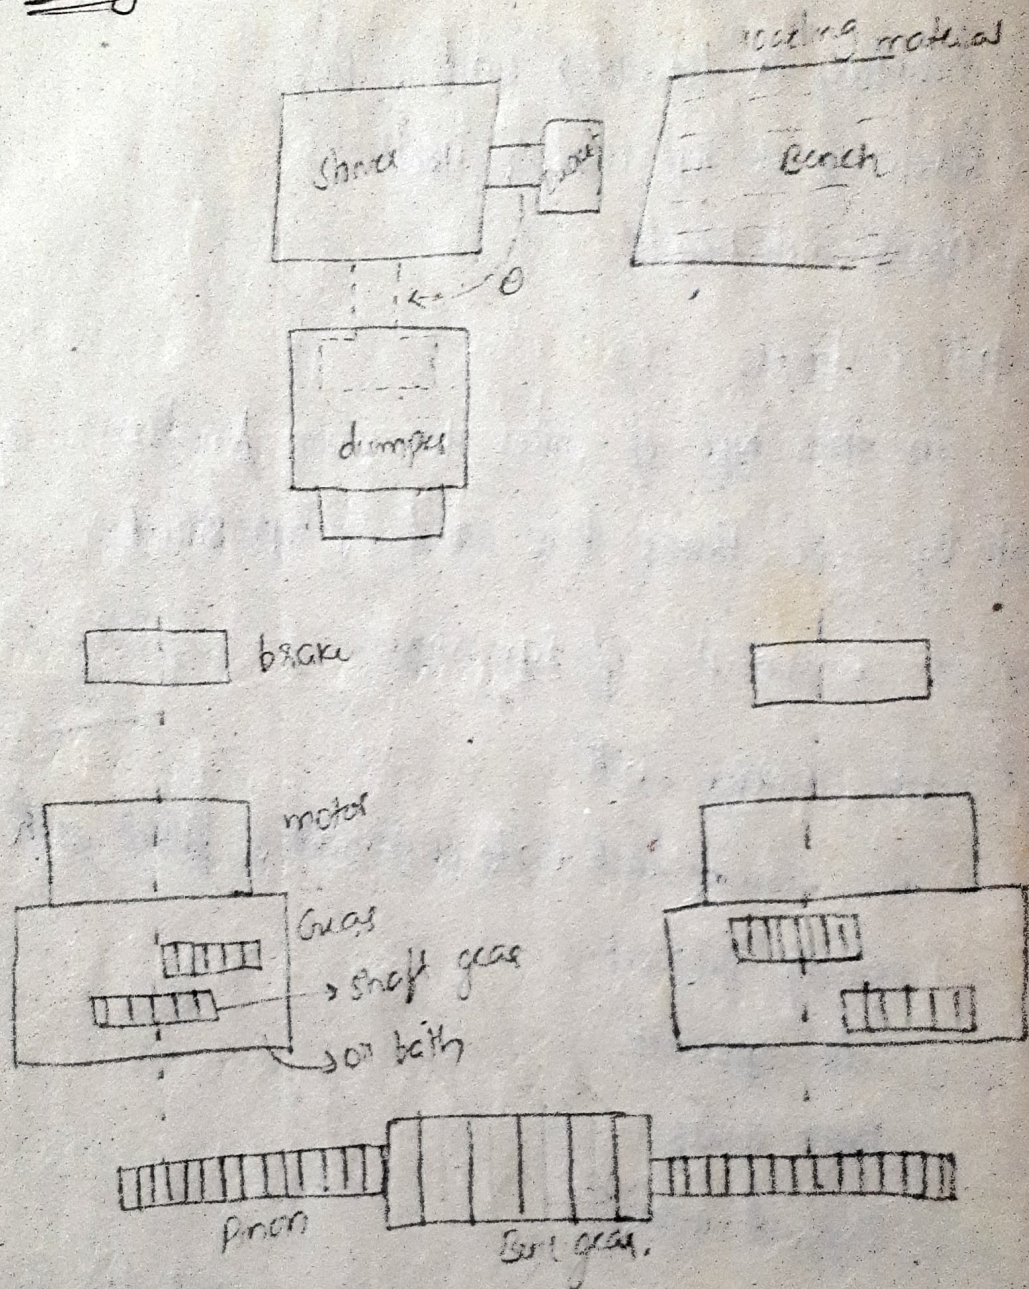 loading material
Shovel
Bench
θ
dumper
brake
motor
Gears
shaft gear
oil bath
Pinion
gear.